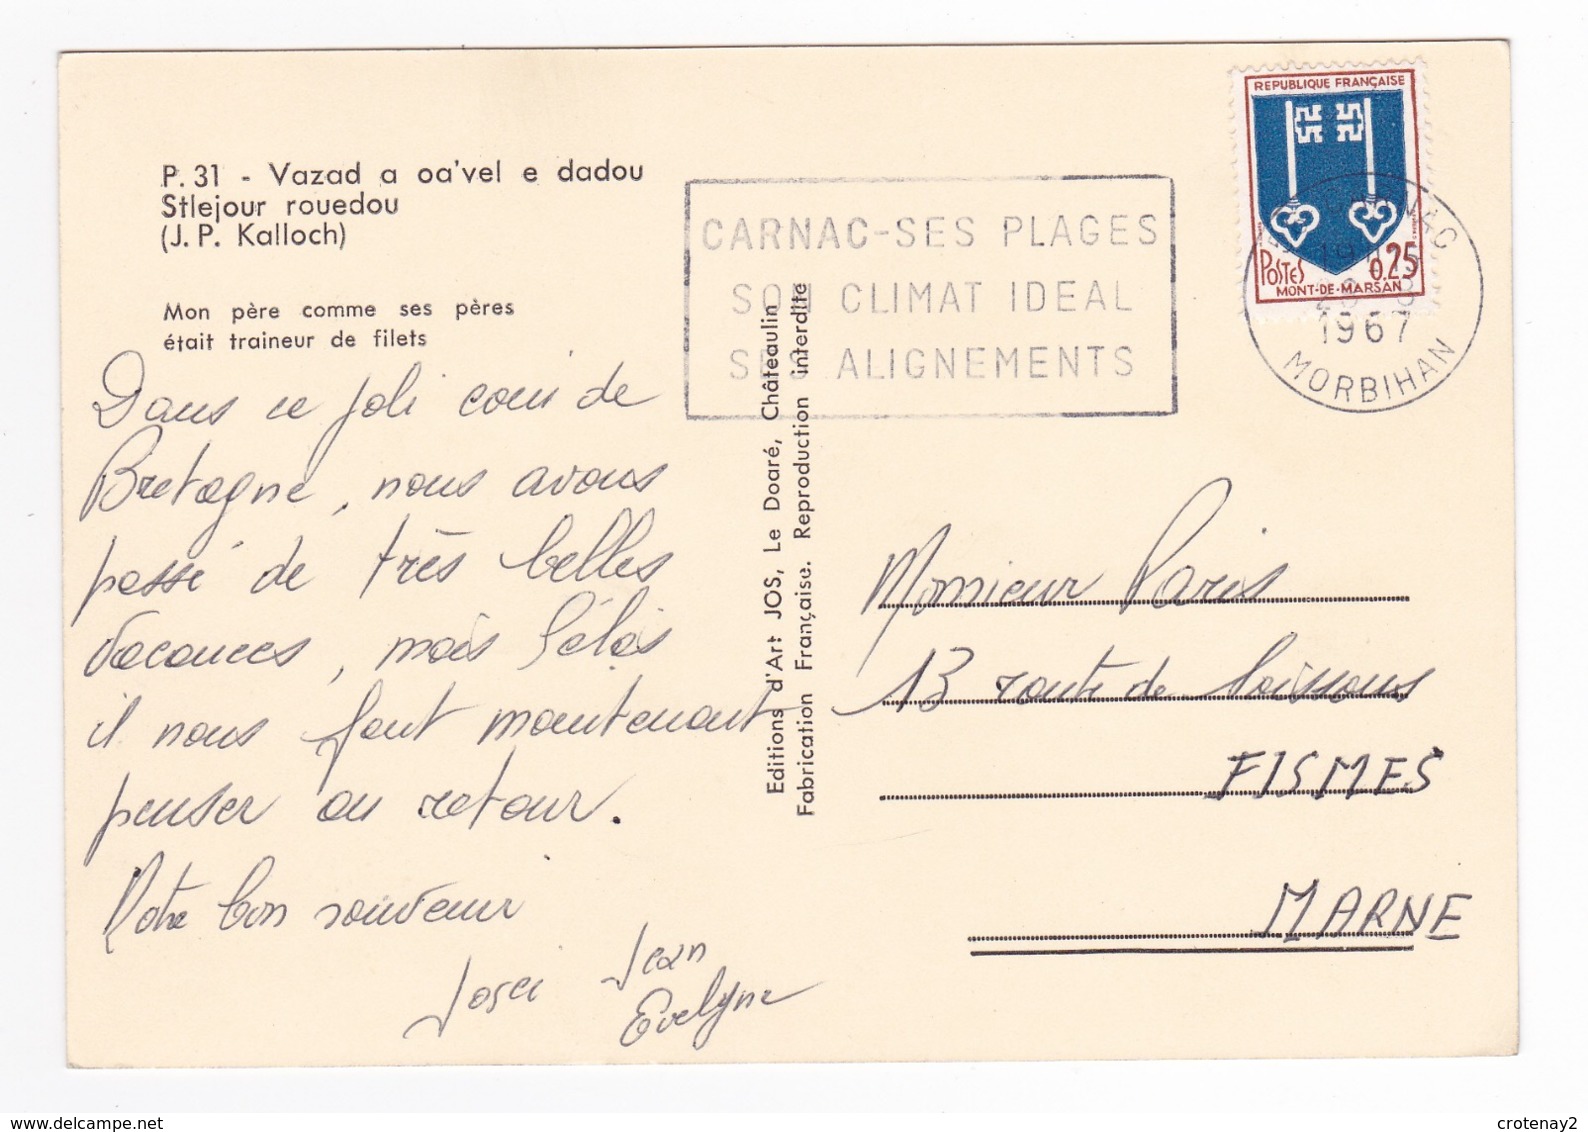 P. 31 - Vazad a oa'vel e dadou
Stlejour rouedou
(J. P. Kalloch)
Mon père comme ses pères
était traineur de filets
Dans ce joli coin de
Bretagne, nous avons
passé de très belles
vacances, mais hélas
il nous faut maintenant
penser au retour.
Notre bon souvenir
Jean
Evelyne
Editions d'Art JOS, Le Doaré, Châteaulin
Fabrication Française. Reproduction interdite
CARNAC-SES PLAGES
SON CLIMAT IDEAL
SES ALIGNEMENTS
REPUBLIQUE FRANÇAISE
POSTES 0,25
MONT-DE-MARSAN
1967
MORBIHAN
Monsieur Paris
13 route de Soissons
FISMES
MARNE
crotenay2